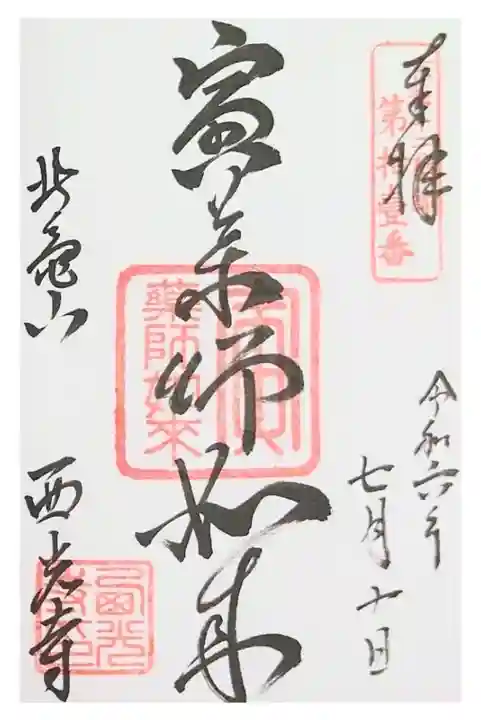 奉拝
第拾壹番
令和六年
七月十日
寅薬師如来
寅
薬師如来
北亀山
西光寺